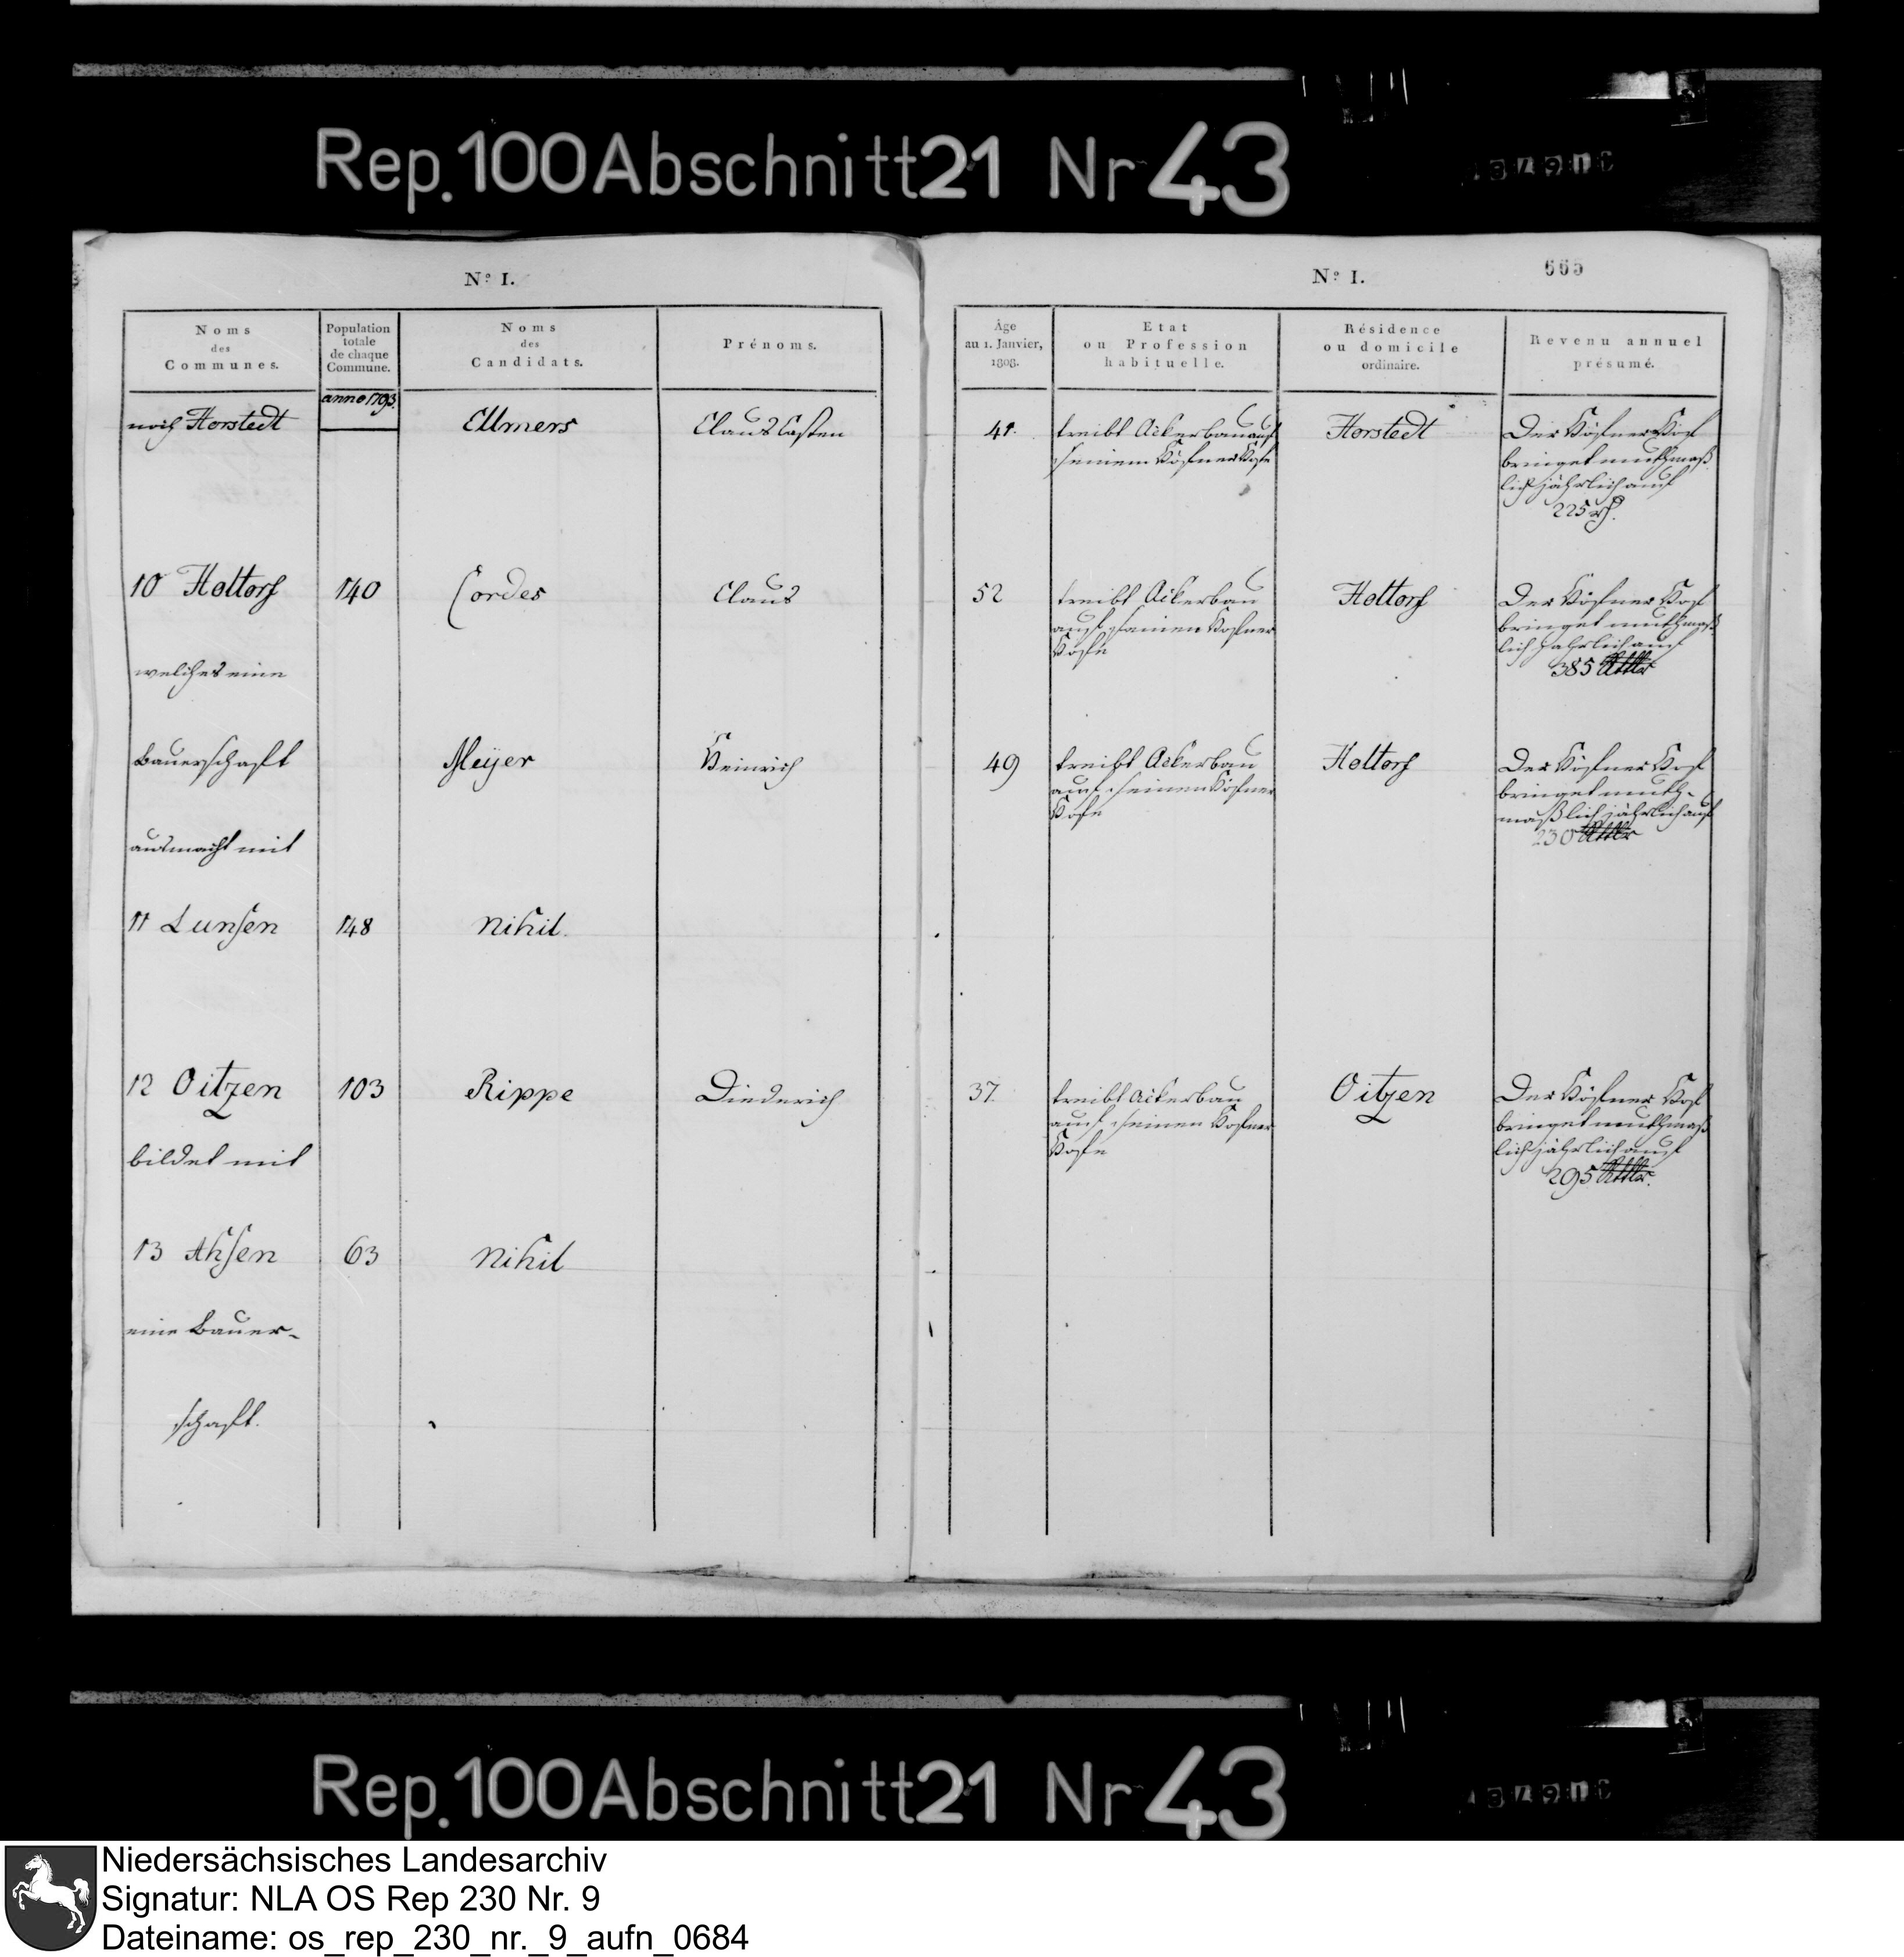 Rep. 100 Abschnitt 21 Nr 43
Nº I.
Noms
des
Communes.
Population
totale
de chaque
Commune.
Noms
des
Candidats.
Prénoms.
anno 1793.
noch Horstedt
Ellmers
Claus Casten
10 Holtorf
140
Cordes
Claus
welches eine
Bauerschaft
Meyer
Heinrich
ausmacht mit
11 Lunsen
148
Nihil.
12 Oitzen
103
Rippe
Diederich
bildet mit
13 Ahsen
63
Nihil
eine Bauer-
schaft.
Nº I.
665
Âge
au 1. Janvier,
1808.
Etat
ou Profession
habituelle.
Résidence
ou domicile
ordinaire.
Revenu annuel
présumé.
41.
treibt Ackerbau auf
seinem Köthner Hofe
Horstedt
Der Köthner Hof
bringet muthmaß
lich jährlich auf
225 rh.
52
treibt Ackerbau
auf seinen Köthner
Hofe
Holtorf
Der Köthner Hof
bringet muthmaß
lich jährlich auf
385 Rthlr
49
treibt Ackerbau
auf seinen Köthner
Hofe
Holtorf
Der Köthner Hof
bringet muth-
maßlich jährlich auf
230 Rthlr
37
treibt Ackerbau
auf seinen Köthner
Hofe
Oitzen
Der Köthner Hof
bringet muthmaß
lich jährlich auf
295 Rthlr.
Rep. 100 Abschnitt 21 Nr 43
Niedersächsisches Landesarchiv
Signatur: NLA OS Rep 230 Nr. 9
Dateiname: os_rep_230_nr._9_aufn_0684